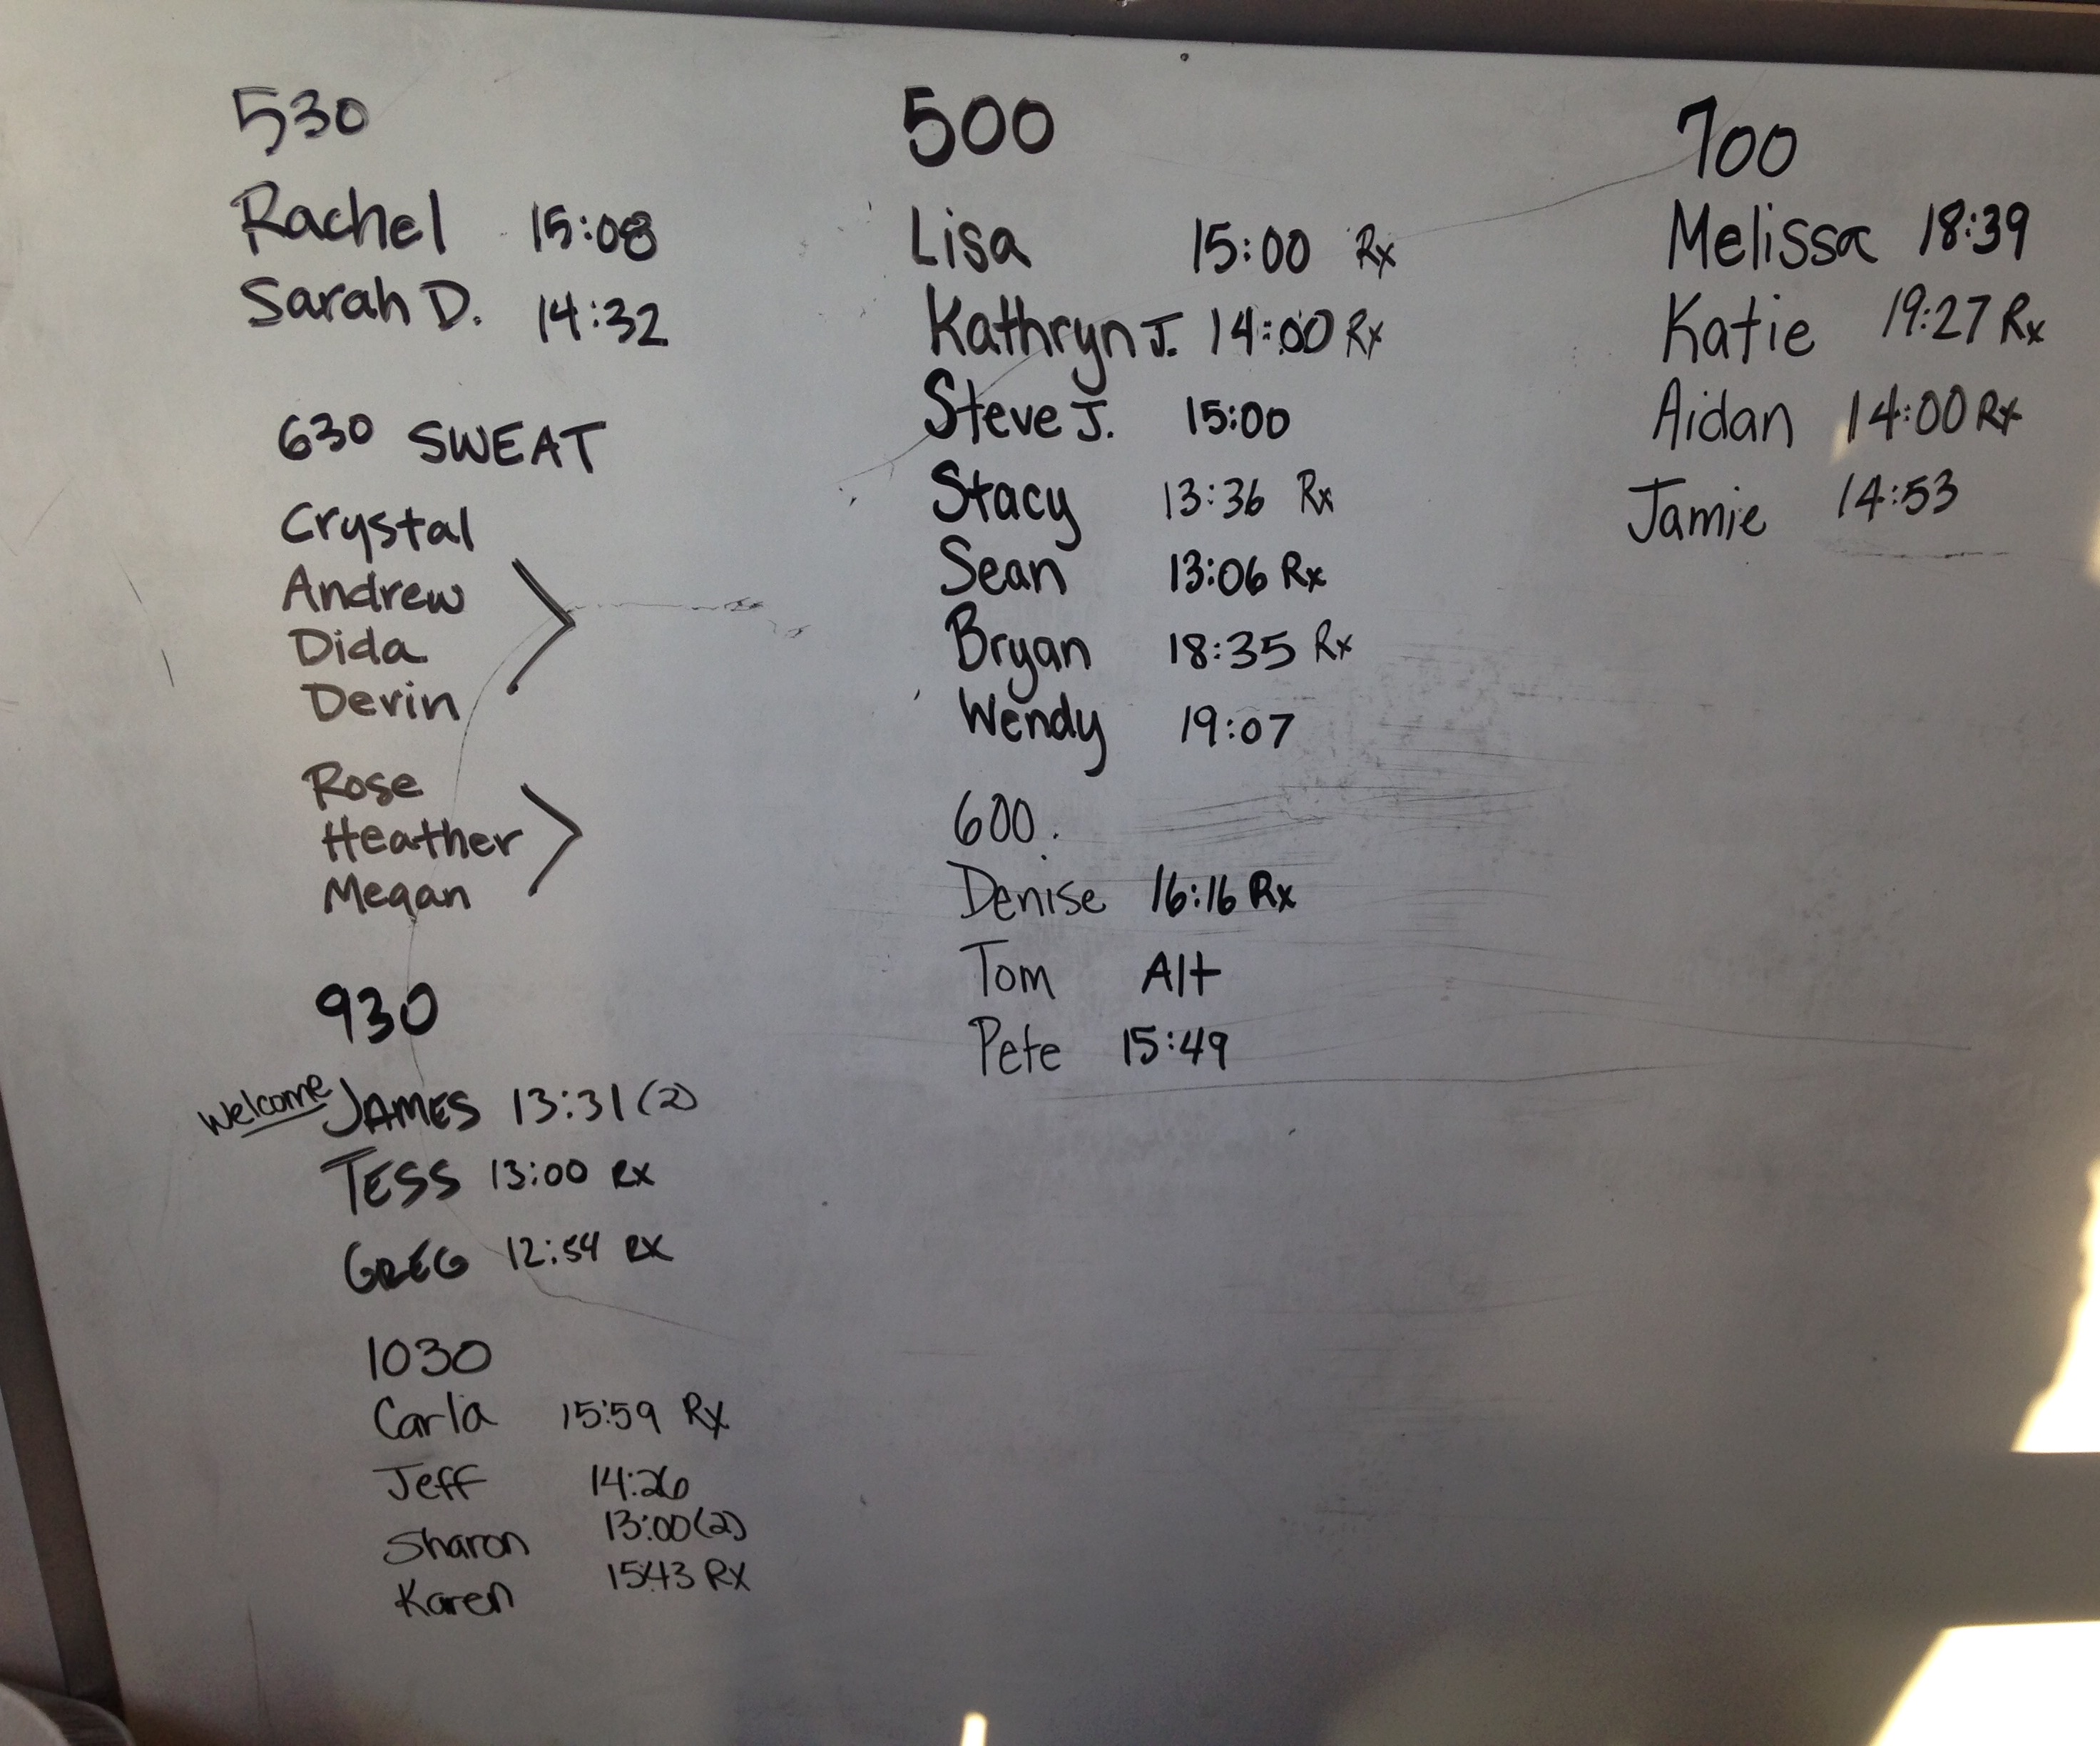 530
Rachel 15:08
Sarah D. 14:32
630 SWEAT
Crystal
Andrew
Dida
Devin
Rose
Heather
Megan
930
Welcome JAMES 13:31 (2)
TESS 13:00 RX
GREG 12:54 RX
1030
Carla 15:59 Rx
Jeff 14:26
Sharon 13:00 (2)
Karen 15:43 RX
500
Lisa 15:00 Rx
Kathryn J. 14:00 Rx
Steve J. 15:00
Stacy 13:36 Rx
Sean 13:06 Rx
Bryan 18:35 Rx
Wendy 19:07
600
Denise 16:16 Rx
Tom Alt
Pete 15:49
700
Melissa 18:39
Katie 19:27 Rx
Aidan 14:00 Rx
Jamie 14:53